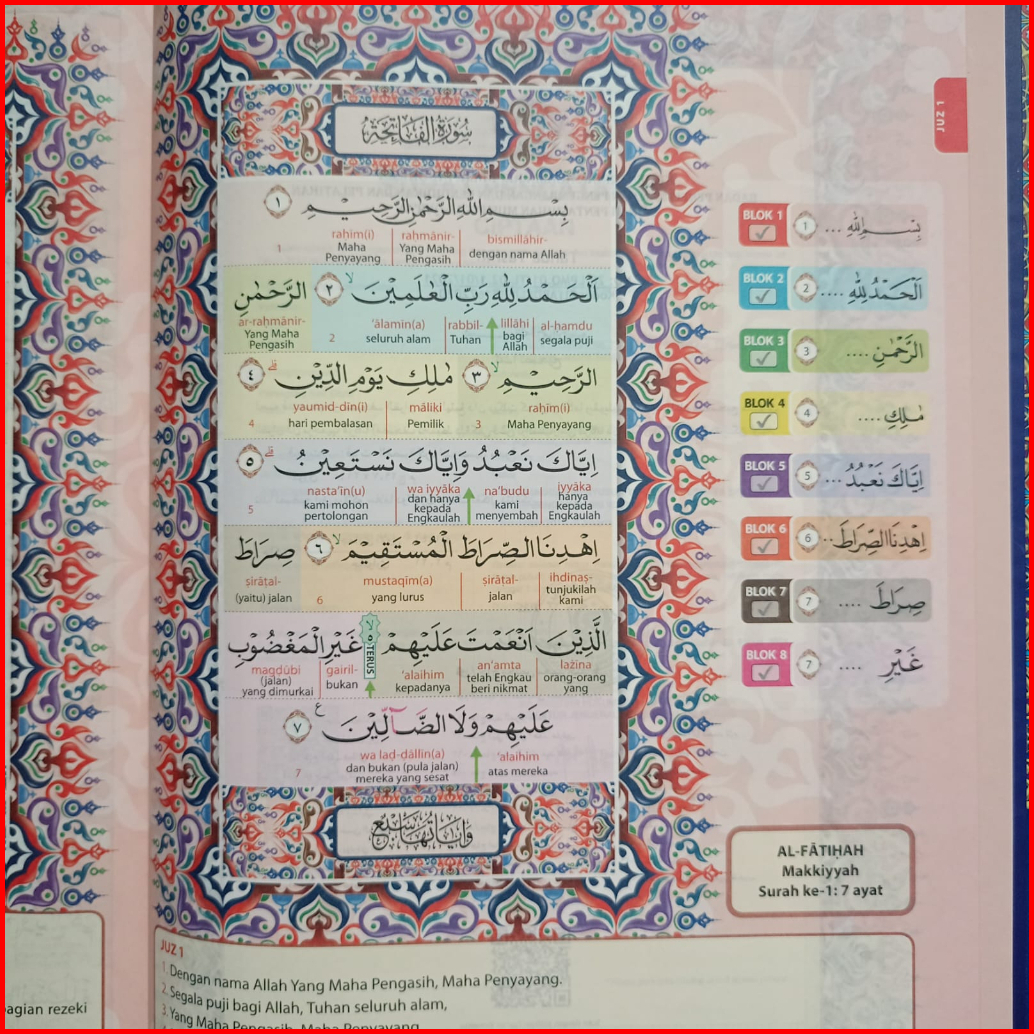 سُورَةُ الْفَاتِحَةِ
بِسْمِ اللّٰهِ الرَّحْمٰنِ الرَّحِيْمِ ١
bismillāhir- raḥmānir- raḥīm(i)
dengan nama Allah Yang Maha Pengasih Maha Penyayang 1
اَلْحَمْدُ لِلّٰهِ رَبِّ الْعٰلَمِيْنَۙ ٢ الرَّحْمٰنِ
al-ḥamdu lillāhi rabbil- ‘ālamīn(a) ar-raḥmānir-
segala puji bagi Allah Tuhan seluruh alam 2 Yang Maha Pengasih
الرَّحِيْمِۙ ٣ مٰلِكِ يَوْمِ الدِّيْنِۗ ٤
raḥīm(i) māliki yaumid-dīn(i)
Maha Penyayang 3 Pemilik hari pembalasan 4
اِيَّاكَ نَعْبُدُ وَاِيَّاكَ نَسْتَعِيْنُۗ ٥
iyyāka na‘budu wa iyyāka nasta‘īn(u)
hanya kepada Engkaulah kami menyembah dan hanya kepada Engkaulah kami mohon pertolongan 5
اِهْدِنَا الصِّرَاطَ الْمُسْتَقِيْمَۙ ٦ صِرَاطَ
ihdinaṣ- ṣirāṭal- mustaqīm(a) ṣirāṭal-
tunjukilah kami jalan yang lurus 6 (yaitu) jalan
الَّذِيْنَ اَنْعَمْتَ عَلَيْهِمْ ەۙ TERUS غَيْرِ الْمَغْضُوْبِ
lażīna an‘amta ‘alaihim gairil- magḍūbi
orang-orang yang telah Engkau beri nikmat kepadanya bukan (jalan) yang dimurkai
عَلَيْهِمْ وَلَا الضَّاۤلِّيْنَ ع ٧
‘alaihim wa laḍ-ḍāllīn(a)
atas mereka dan bukan (pula jalan) mereka yang sesat 7
وَاٰيَاتُهَا سَبْعٌ
JUZ 1
BLOK 1 1 ... بِسْمِ اللّٰهِ
BLOK 2 2 .... اَلْحَمْدُ لِلّٰهِ
BLOK 3 3 .... الرَّحْمٰنِ
BLOK 4 4 .... مٰلِكِ
BLOK 5 5 ... اِيَّاكَ نَعْبُدُ
BLOK 6 6 .. اِهْدِنَا الصِّرَاطَ
BLOK 7 7 .... صِرَاطَ
BLOK 8 7 .... غَيْرِ
AL-FĀTIḤAH
Makkiyyah
Surah ke-1: 7 ayat
JUZ 1
1. Dengan nama Allah Yang Maha Pengasih, Maha Penyayang.
2. Segala puji bagi Allah, Tuhan seluruh alam,
3. Yang Maha Pengasih, Maha Penyayang,
agian rezeki